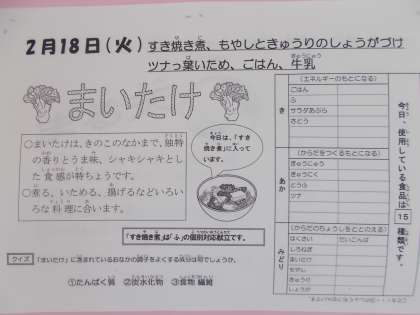 2月18日(火) すき焼き煮、もやしときゅうりのしょうがづけ
ツナっ葉いため、ごはん、牛乳
まいたけ
○まいたけは、きのこのなかまで、独特
の香りとうま味、シャキシャキとし
た食感が特ちょうです。
○煮る、いためる、揚げるなどいろい
ろな料理に合います。
今日は、「すき
焼き煮」に入って
います。
「すき焼き煮」は「ふ」の個別対応献立です。
クイズ 「まいたけ」に含まれているおなかの調子をよくする成分は何でしょうか。
①たんぱく質 ②炭水化物 ③食物繊維
き
(エネルギーのもとになる)
ごはん
ふ
サラダあぶら
さとう
あか
(からだをつくるもとになる)
ぎゅうにゅう
ぎゅうにく
とうふ
ツナ
みどり
(からだのちょうしをととのえる)
はくさい だいこんば
しろねぎ
まいたけ
もやし
きゅうり
しょうが
今日、使用している食品は
15
種類です。